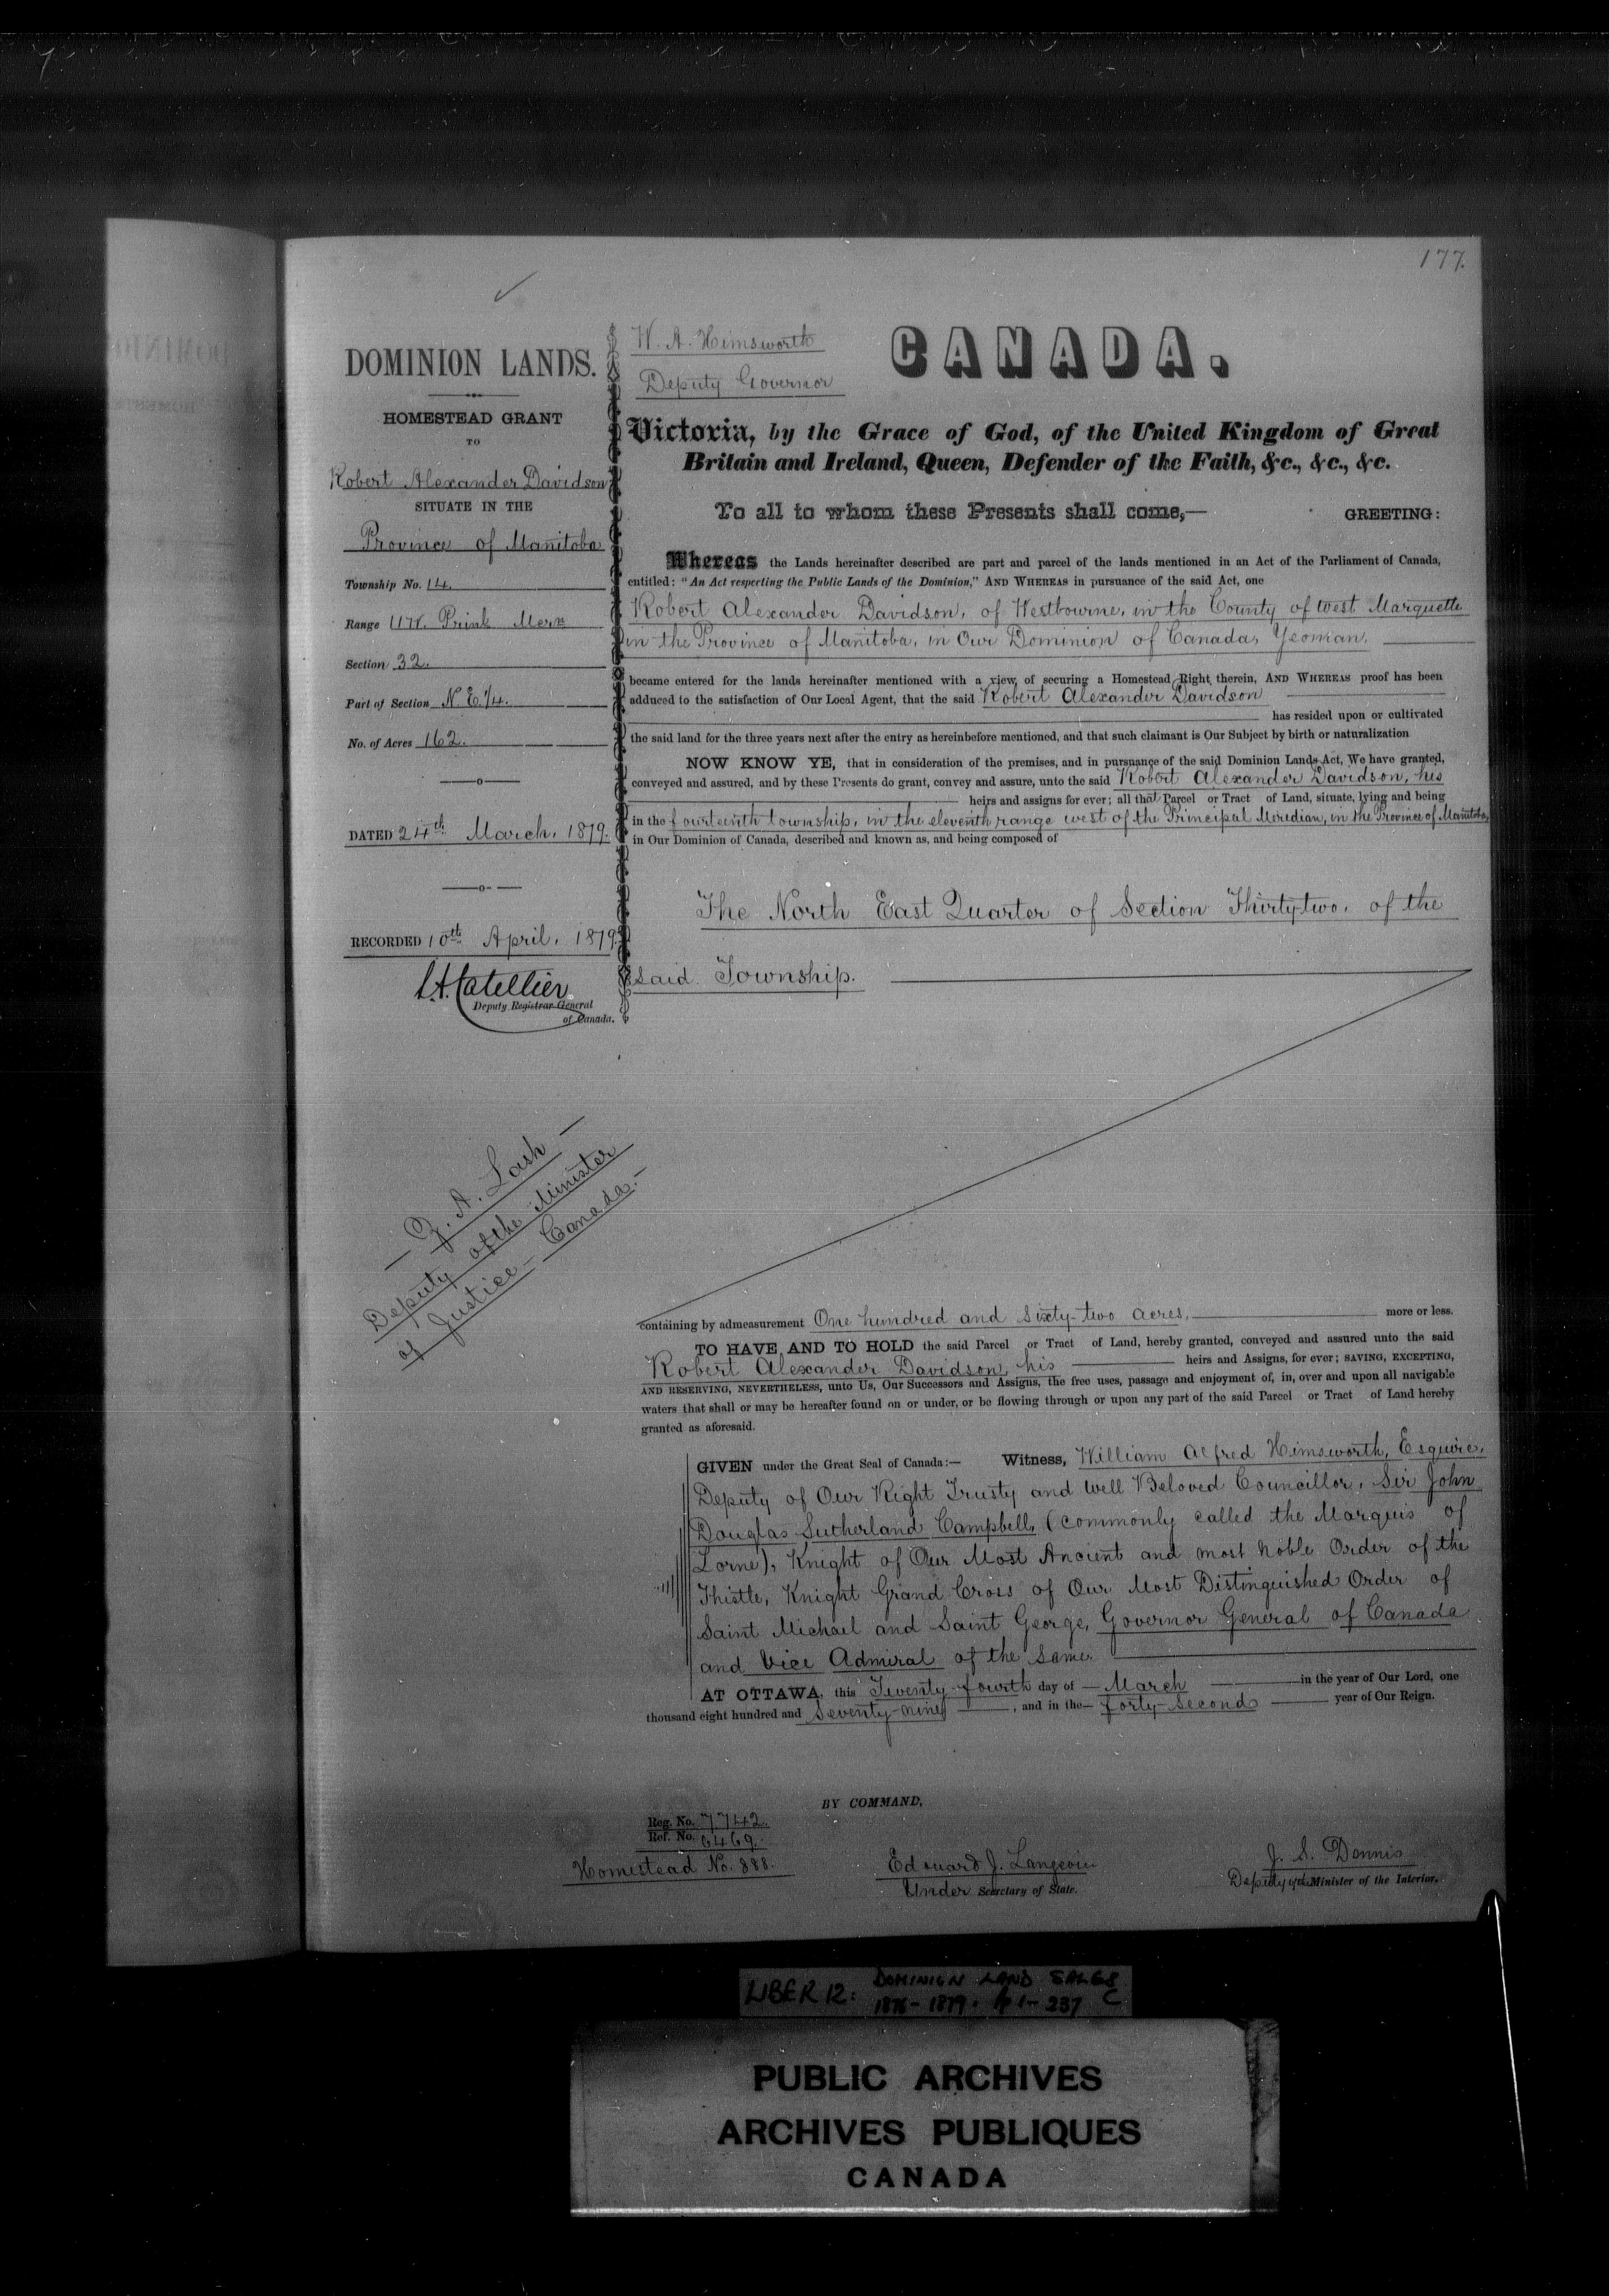 177.
DOMINION LANDS.
HOMESTEAD GRANT
TO
Robert Alexander Davidson
SITUATE IN THE
Province of Manitoba
Township No. 14.
Range 11 W. Prin'l Mer'n
Section 32.
Part of Section N E 1/4.
No. of Acres 162.
DATED 24th March, 1879.
RECORDED 10th April, 1879.
Deputy Registrar General
of Canada.
Z. A. Lash
Deputy of the Minister
of Justice - Canada.
W. A. Himsworth
Deputy Governor
CANADA.
Victoria, by the Grace of God, of the United Kingdom of Great
Britain and Ireland, Queen, Defender of the Faith, &c., &c., &c.
To all to whom these Presents shall come,— GREETING:
Whereas the Lands hereinafter described are part and parcel of the lands mentioned in an Act of the Parliament of Canada,
entitled: "An Act respecting the Public Lands of the Dominion," AND WHEREAS in pursuance of the said Act, one
Robert Alexander Davidson, of Westbourne, in the County of West Marquette
in the Province of Manitoba, in Our Dominion of Canada, Yeoman,
became entered for the lands hereinafter mentioned with a view of securing a Homestead Right therein, AND WHEREAS proof has been
adduced to the satisfaction of Our Local Agent, that the said Robert Alexander Davidson
has resided upon or cultivated
the said land for the three years next after the entry as hereinbefore mentioned, and that such claimant is Our Subject by birth or naturalization
NOW KNOW YE, that in consideration of the premises, and in pursuance of the said Dominion Lands Act, We have granted,
conveyed and assured, and by these Presents do grant, convey and assure, unto the said Robert Alexander Davidson, his
heirs and assigns for ever; all that Parcel or Tract of Land, situate, lying and being
in the fourteenth township, in the eleventh range west of the Principal Meridian, in the Province of Manitoba,
in Our Dominion of Canada, described and known as, and being composed of
The North East Quarter of Section Thirty-two, of the
said Township.
containing by admeasurement One hundred and sixty-two acres, more or less.
TO HAVE AND TO HOLD the said Parcel or Tract of Land, hereby granted, conveyed and assured unto the said
Robert Alexander Davidson, his heirs and Assigns, for ever; SAVING, EXCEPTING,
AND RESERVING, NEVERTHELESS, unto Us, Our Successors and Assigns, the free uses, passage and enjoyment of, in, over and upon all navigable
waters that shall or may be hereafter found on or under, or be flowing through or upon any part of the said Parcel or Tract of Land hereby
granted as aforesaid.
GIVEN under the Great Seal of Canada:— Witness, William Alfred Himsworth, Esquire,
Deputy of Our Right Trusty and Well Beloved Councillor, Sir John
Douglas Sutherland Campbell, (commonly called the Marquis of
Lorne), Knight of Our Most Ancient and most Noble Order of the
Thistle, Knight Grand Cross of Our Most Distinguished Order of
Saint Michael and Saint George, Governor General of Canada
and Vice Admiral of the same.
AT OTTAWA, this Twenty-fourth day of March in the year of Our Lord, one
thousand eight hundred and seventy-nine, and in the forty-second year of Our Reign.
BY COMMAND,
Reg. No. 7742.
Ref. No. 6469.
Homestead No. 888.
Edouard J. Langevin
Under Secretary of State.
J. S. Dennis
Deputy of the Minister of the Interior.
LIBER 12: DOMINION LAND SALES
1876-1879. pp 1-237 C
PUBLIC ARCHIVES
ARCHIVES PUBLIQUES
CANADA